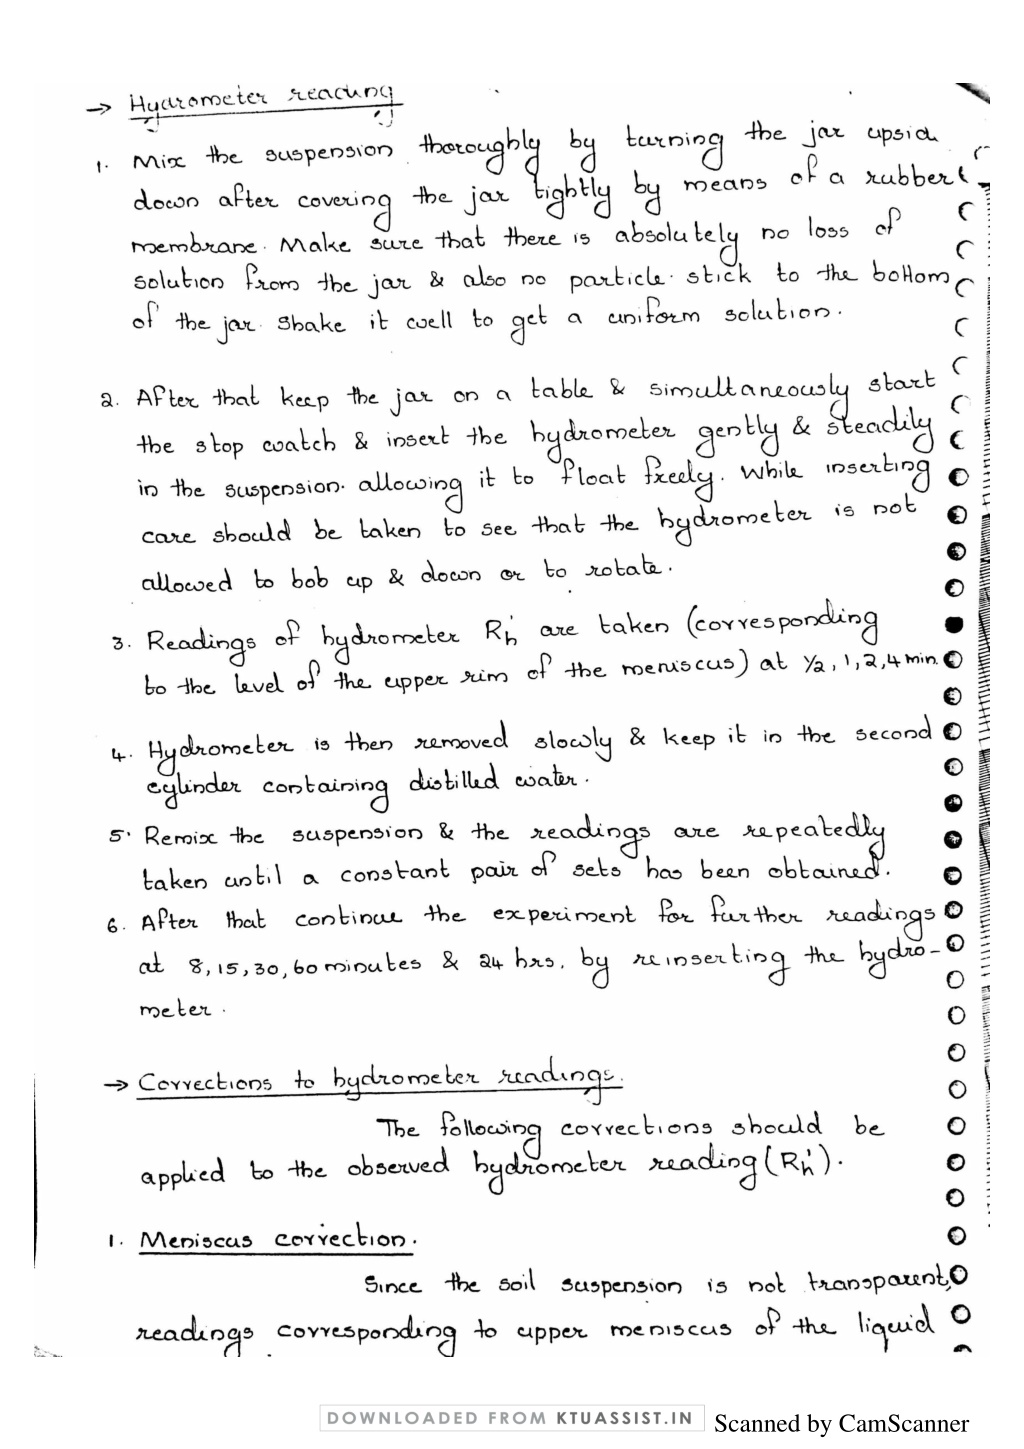 → Hydrometer reading
1. Mix the suspension thoroughly by turning the jar upsid
down after covering the jar tightly by means of a rubber
membrane. Make sure that there is absolutely no loss of
solution from the jar & also no particle stick to the bottom
of the jar. Shake it well to get a uniform solution.
2. After that keep the jar on a table & simultaneously start
the stop watch & insert the hydrometer gently & steadily
in the suspension. allowing it to float freely. While inserting
care should be taken to see that the hydrometer is not
allowed to bob up & down or to rotate.
3. Readings of hydrometer Rh' are taken (corresponding
to the level of the upper rim of the meniscus) at 1/2, 1, 2, 4 min.
4. Hydrometer is then removed slowly & keep it in the second
cylinder containing distilled water.
5. Remix the suspension & the readings are repeatedly
taken until a constant pair of sets has been obtained.
6. After that continue the experiment for further readings
at 8, 15, 30, 60 minutes & 24 hrs. by reinserting the hydro-
meter.
→ Corrections to hydrometer readings.
The following corrections should be
applied to the observed hydrometer reading (Rh').
1. Meniscus correction.
Since the soil suspension is not transparent,
readings corresponding to upper meniscus of the liquid
DOWNLOADED FROM KTUASSIST.IN
Scanned by CamScanner